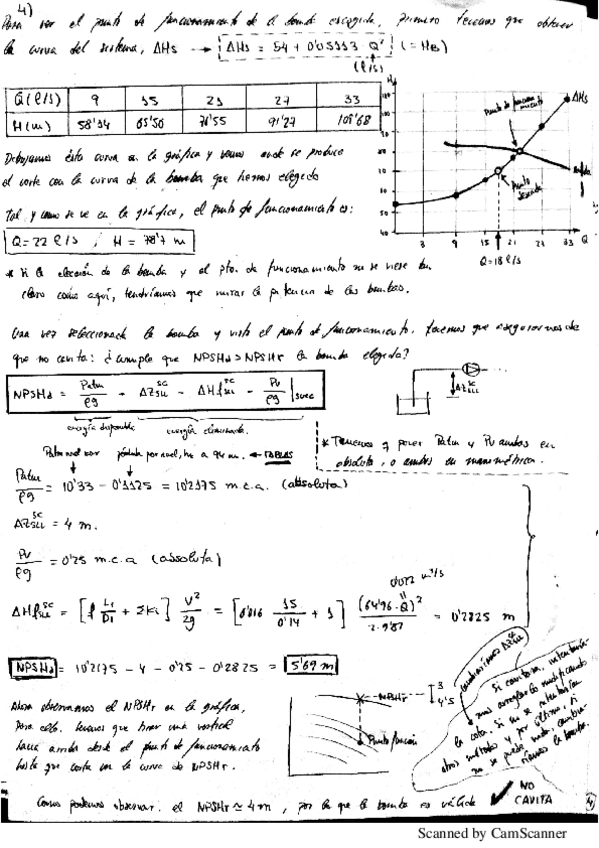 4)
Para ver el punto de funcionamiento de la bomba escogida, primero tenemos que obtener
la curva del sistema, ΔHs → ΔHs = 54 + 0'05113 Q² (= HB)
(l/s)
Q(l/s) 9 15 21 27 33
H(m) 58'14 65'50 76'55 91'27 109'68
Dibujamos ésta curva en la gráfica y vemos donde se produce
el corte con la curva de la bomba que hemos elegido
Tal y como se ve en la gráfica, el punto de funcionamiento es:
Q = 22 l/s ; H = 78'7 m
ΔHs
Punto de funcionamiento
Punto deseado
Bomba
3 9 15 21 27 33 Q
Q=18 l/s
* Si la elección de la bomba y el pto. de funcionamiento no se viese tan
claro como aquí, tendríamos que mirar la potencia de las bombas.
Una vez seleccionada la bomba y visto el punto de funcionamiento, tenemos que asegurarnos de
que no cavita: ¿cumple que NPSHd > NPSHr la bomba elegida?
NPSHd = Patm/ρg - ΔZ - ΔHf - Pv/ρg
energía disponible energía eliminada.
* Tenemos q poner Patm y Pv ambas en
absoluta, o ambas en manométrica.
Patm nivel mar pérdida por nivel, ← TABLAS
Patm/ρg = 10'33 - 0'1125 = 10'2175 m.c.a. (absoluta)
ΔZ = 4 m.
Pv/ρg = 0'25 m.c.a (absoluta)
0'022 m³/s
ΔHf = [f Li/Di + Σki] V²/2g = [0'016 15/0'14 + 1] (64'96·Q)²/2·9'81 = 0'2825 m
NPSHd = 10'2175 - 4 - 0'25 - 0'2825 = 5'69 m
Ahora observamos el NPSHr en la gráfica,
Para ello, tenemos que tirar una vertical
hacia arriba desde el punto de funcionamiento
hasta que corte con la curva de NPSHr.
NPSHr
3
4'5
Punto función
Si cavitara, intentaríamos
arreglarlo modificando
la cota. Si no se
otros métodos y por último, si
no se puede nada,
la bomba.
Como podemos observar, el NPSHr ≃ 4 m, por lo que la bomba es válida ✓ NO
CAVITA
4
Scanned by CamScanner